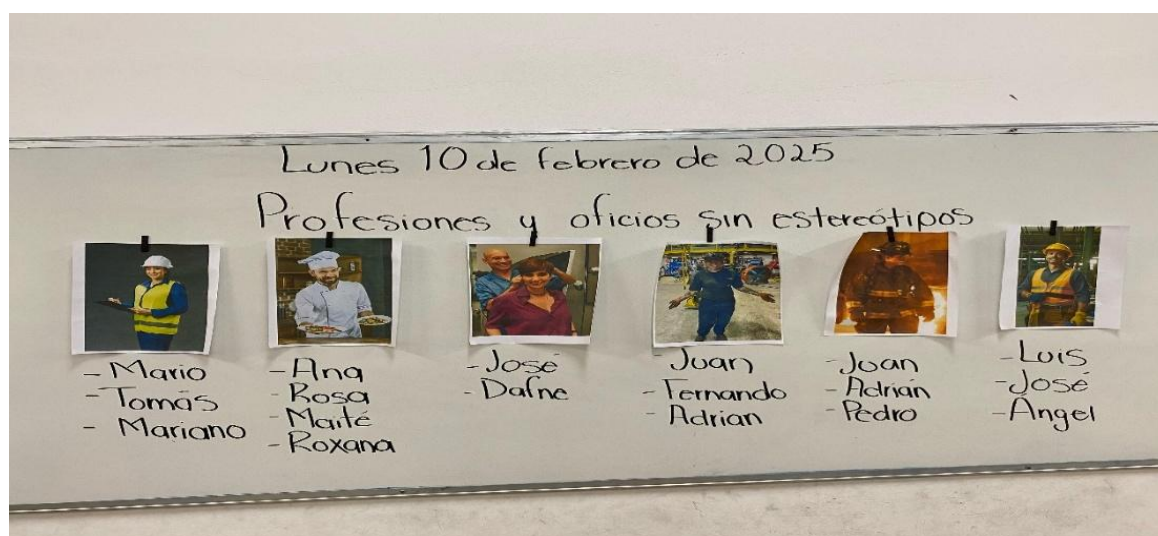 Lunes 10 de febrero de 2025
Profesiones y oficios sin estereótipos
- Mario
- Tomás
- Mariano
- Ana
- Rosa
- Maité
- Roxana
- José
- Dafne
- Juan
- Fernando
- Adrian
- Juan
- Adrián
- Pedro
- Luis
- José
- Ángel